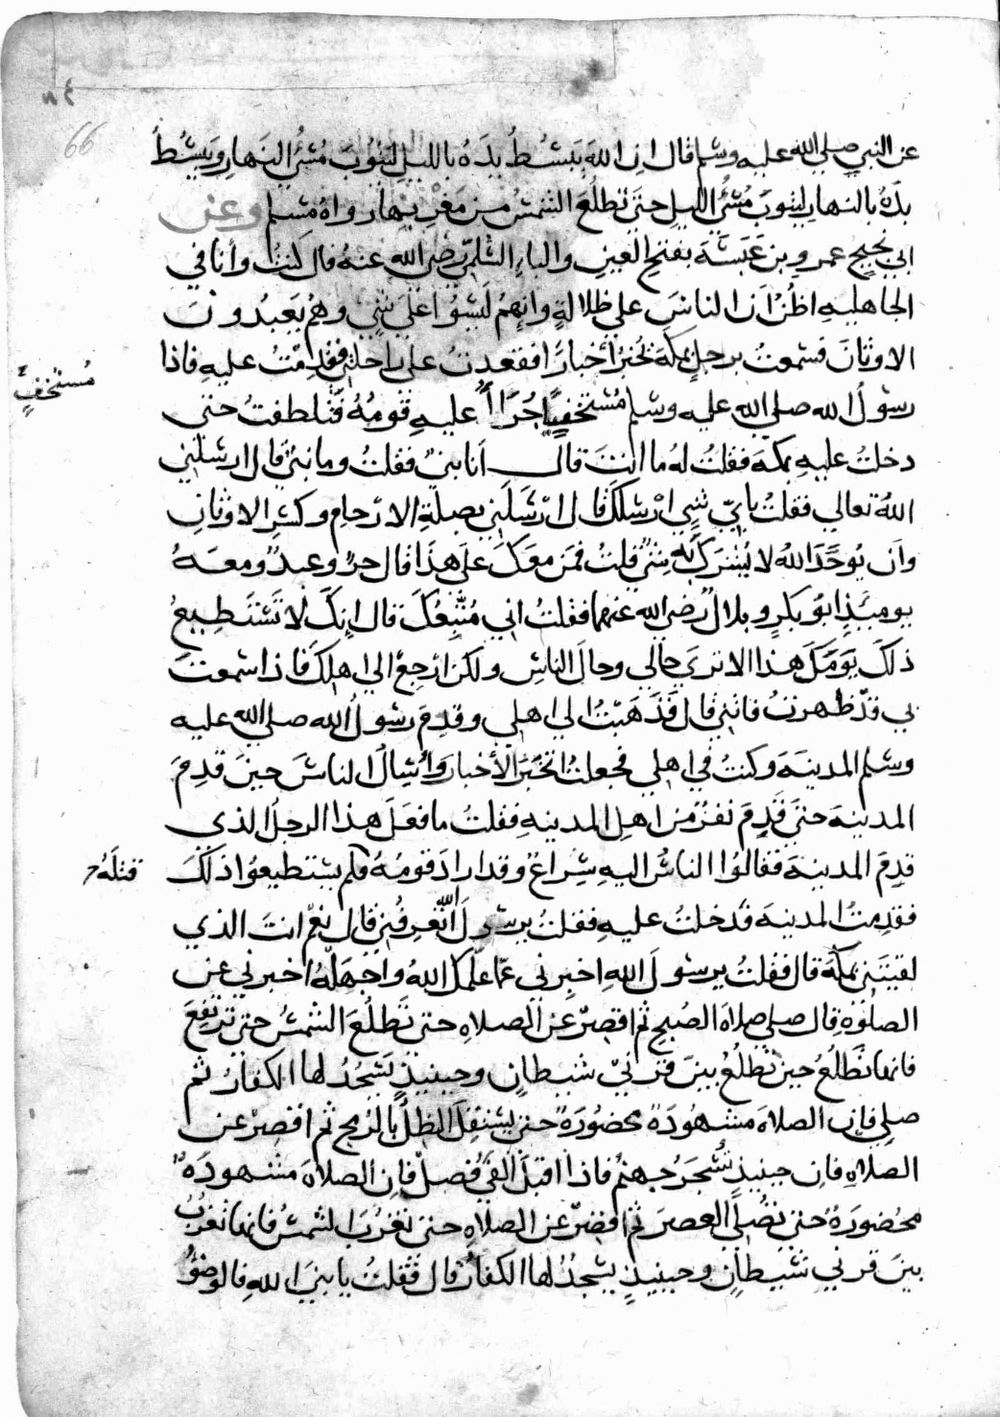 ٨٤
66
عن النبي صلى الله عليه وسلم قال ان الله يبسُطُ يدَهُ بالليل ليتُوبَ مُسئُ النهارِ ويبسُطُ
يدَهُ بالنهارِ ليتوبَ مُسئُ الليلِ حتى تطلُعَ الشمسُ من مَغْرِبِها رواهُ مُسلم وعن
ابي نجيحٍ عمرو بن عَبَسَةَ بفتحِ العينِ والباءِ السُّلَميّ رَضي الله عنهُ قال كنتُ وأنا في
الجاهليهِ اظُنُّ اَن الناسَ على ظلالةٍ وانهمُ لَيسُوا على شيْ وهُم يَعبُدُونَ
الاوثانَ فسمعتُ برجلٍ بمكةَ يُخبرُ أخبارًا فقعدتُ على راحلتي فقدِمْتُ عليهِ فاذا
مُستخفٍ
رسُولُ الله صلى الله عليه وسلم مُستَخفِيًا جُرَأءُ عليهِ قومُهُ فتلطفتُ حتى
دخلتُ عليهِ بمكةَ فقلتُ لهُ ما انتَ قال انا نبيٌ فقلتُ وما نبيٌ قال ارسلني
اللهُ تعالى فقلتُ بايّ شيءٍ ارْسلكَ قال ارْسَلَني بصلةِ الارْحامِ وكسرِ الاوثانِ
واَن يُوحَّدَ اللهُ لا يُشرَكُ بهِ شيٌ قلتُ فمَن معَكَ على هذَا قال حرٌ وعبدٌ ومعَهُ
يوميئذٍ ابُو بكرٍ وبلالٌ رضي الله عنهما فقلتُ اني مُتَّبِعُكَ قال انكَ لا تَسْتَطيعُ
ذلكَ يَوْمَكَ هذا الا ترىَ حالي وحالَ الناسِ ولكن ارْجِعْ الى اهلكَ فاذا سمعتَ
بي قدْ ظهرتُ فاتني قال فَذَهَبْتُ الى اهلي وقدِمَ رسُولُ الله صلى الله عليه
وسلم المدينةَ وكنتُ في اهلي فجعلتُ اتخبَّرُ الأخبارَ وأسْالُ الناسَ حينَ قدِمَ
المدينةَ حتى قَدِمَ نفرٌ من اهلِ المدينهِ فقلتُ ما فعَلَ هذا الرجلُ الذي
قدِمَ المدينةَ فقالوُا الناسُ اليهِ سِراعٌ وقد ارادَ قومُهُ فلم يستطيعُوا ذلكَ
قتلَهُ
فقدِمتُ المدينةَ فدخلتُ عليهِ فقلتُ يرسُولَ الله اتعرفُني قال نعم انتَ الذي
لقيتَني بمكةَ قال فقلتُ يرسُولَ اللهِ اخبِرني عمّا علّمكَ اللهُ واجهَلُهُ اخبرني عن
الصلوةِ قال صلي صلاةَ الصُبحِ ثم اقصِرْ عن الصلاهِ حتى تَطلُعَ الشمسُ حتى ترتفِعَ
فانها تَطلُعُ حين تَطلُعُ بينَ قرنيْ شيطانٍ وحينيذٍ يَسْجُدُ لها الكفارُ ثم
صلى فان الصلاهَ مشهُودَةٌ محضُورَةٌ حتى يستقِلَّ الظلُّ بالرُمحِ ثم اقصِرْ عن
الصلاهِ فان حينيذٍ تُسْجَرُ جهنمُ فاذا اقبَلَ الفيُ فصلّ فان الصلاةَ مشهودَةٌ
محضورَةٌ حتى تُصَلي العصرَ ثم اقصِرْ عن الصلاهِ حتى تغرُبَ الشمسُ فانها تغرُبُ
بينَ قرني شيطانٍ وحينيذٍ يسْجدُ لها الكفارُ قال فقلتُ يا نبيَ اللهِ فالوضوُ